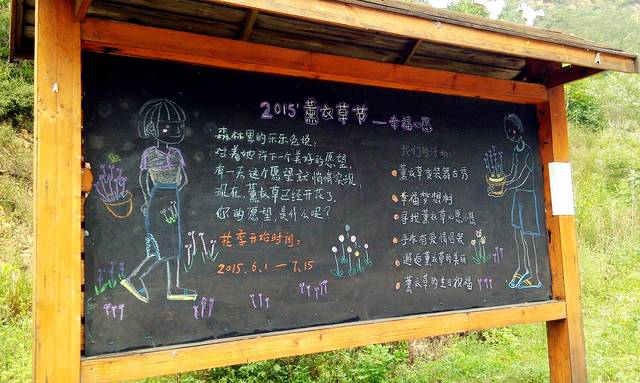 2015'薰衣草节—幸福心愿
森林里的乐乐兔说:
对着她许下一个美好的愿望,
有一天这个愿望就悄悄实现,
现在薰衣草已经开花了,
你的愿望是什么呢?
花季开始时间:
2015.6.1—7.15
我们的活动:
薰衣草变装舞台秀
幸福梦想树
寻找薰衣草心愿小熊
手作有爱情侣装
邂逅薰衣草的美丽
薰衣草的生日祝福